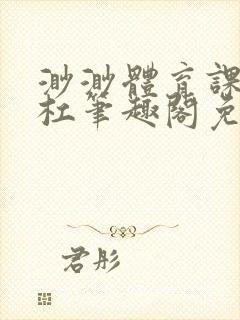 渺渺體育課
杜筆趣閣免
君彤